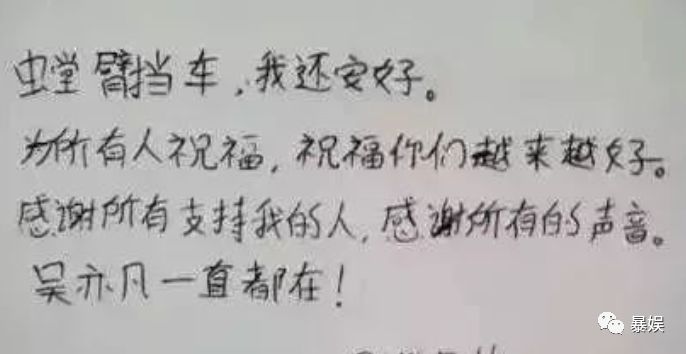 螳臂挡车,我还安好。
为所有人祝福,祝福你们越来越好。
感谢所有支持我的人,感谢所有的声音。
吴亦凡一直都在!
暴娱